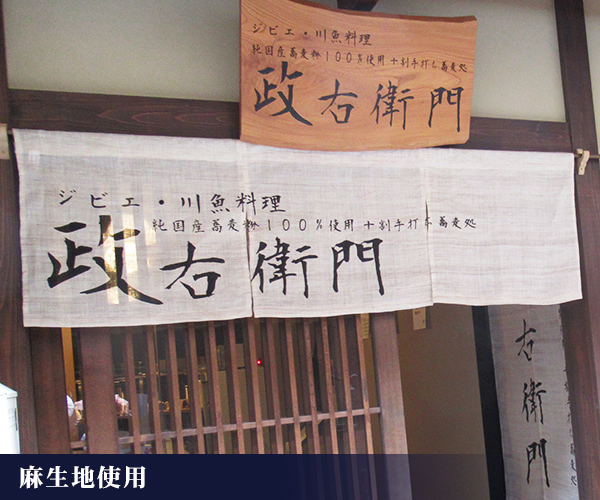 ジビエ・川魚料理
純国産蕎麦粉100%使用 十割手打ち蕎麦処
政右衛門
ジビエ・川魚料理
純国産蕎麦粉100%使用 十割手打ち蕎麦処
政右衛門
右衛門
麻生地使用